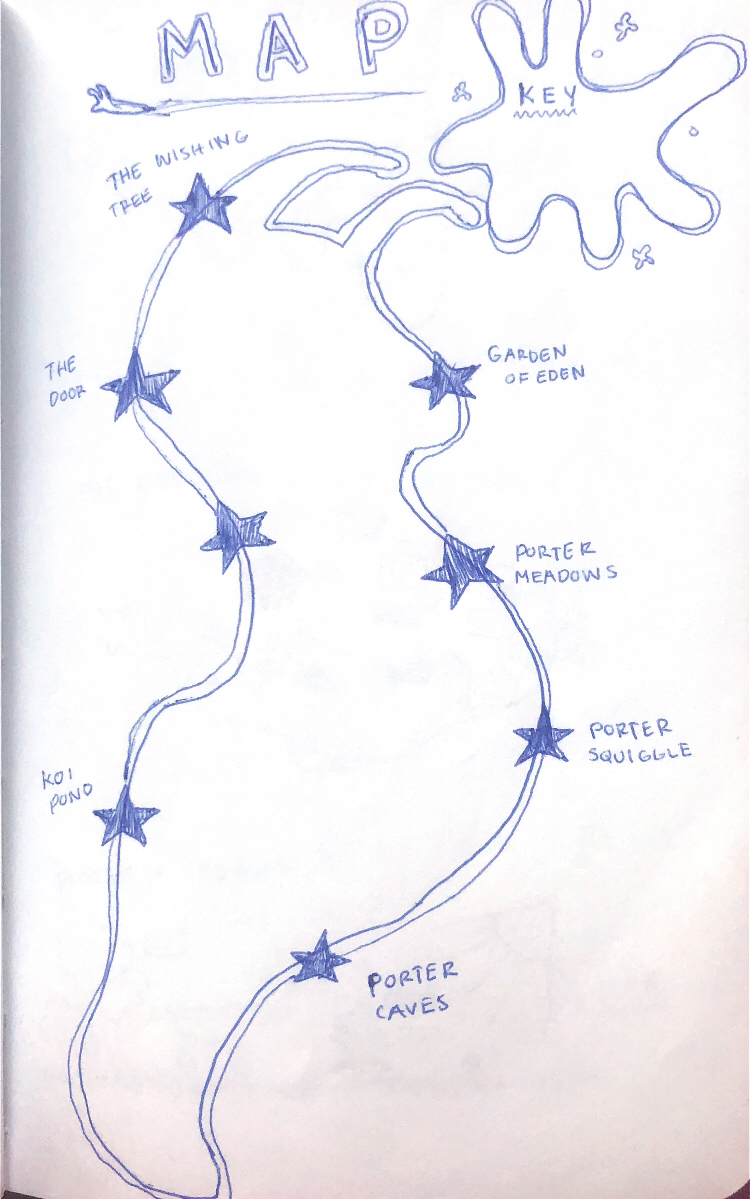 MAP
KEY
THE WISHING
TREE
THE
DOOR
GARDEN
OF EDEN
PORTER
MEADOWS
PORTER
SQUIGGLE
KOI
POND
PORTER
CAVES